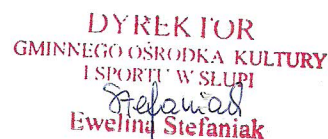 DYREKTOR
GMINNEGO OŚRODKA KULTURY
I SPORTU W SŁUPI
Stefaniak
Ewelina Stefaniak